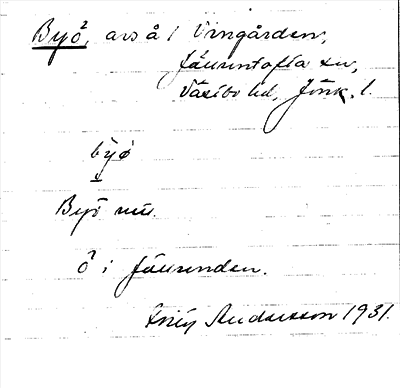 Byö, avs å / Vingården,
Järsntofta sn,
Västbo hd, Jönk. l.
byø
Byö mü.
ö i Färunden.
Andersson 1931.